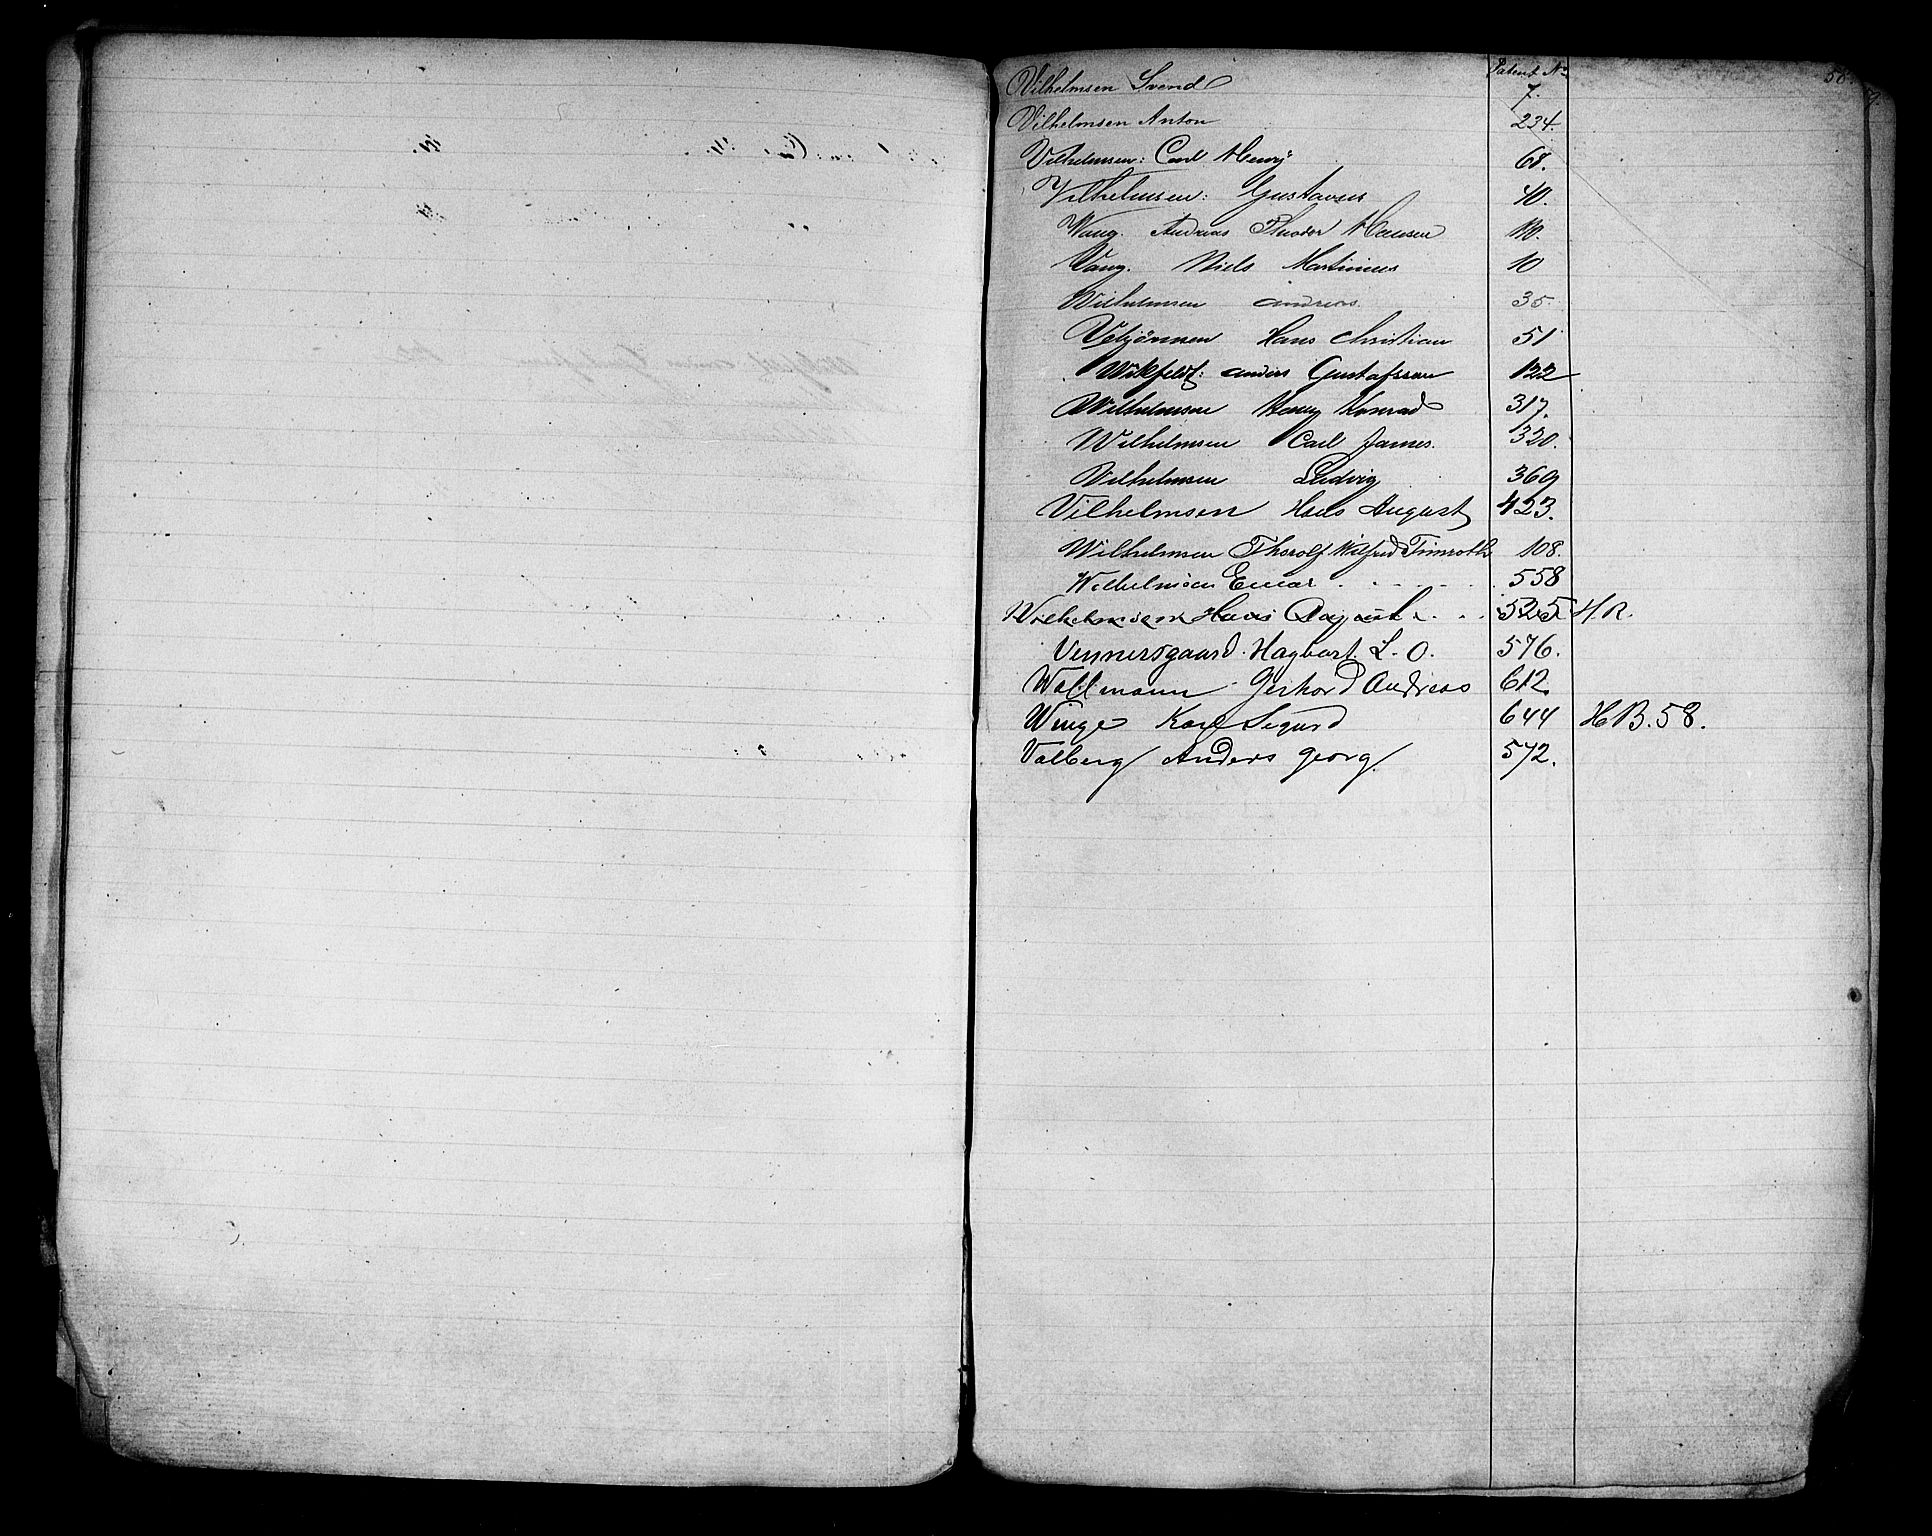 Patent No
58
Vilhelmsen Svend 7.
Vilhelmsen Anton 234.
Vilhelmsen: Carl Henry 68.
Vilhelmsen: Gustavus 40.
Wang. Andreas Theodor Hansen
Vang. Niels Martinius 10
Wilhelmsen Andreas. 35.
Vebjörnsen Hans Christian 51
Wikfeldt: Anders Gustafsson 122
Wilhelmsen Harry Konrad 317.
Wilhelmsen Carl James. 320.
Wilhelmsen Ludvig 369
Vilhelmsen Hans August 423.
Wilhelmsen Thorolf Wilfred Timroth 108.
Wilhelmsen Einar . . . . . . 558
Wilhelmsen Hans August . . . 525 H.R.
Vennersgaard. Hagbart. L. O. 576.
Wollmann Gerhard Andreas 612.
Winge Karl Sigurd 644 HB.58.
Valberg Anders Georg. 572.